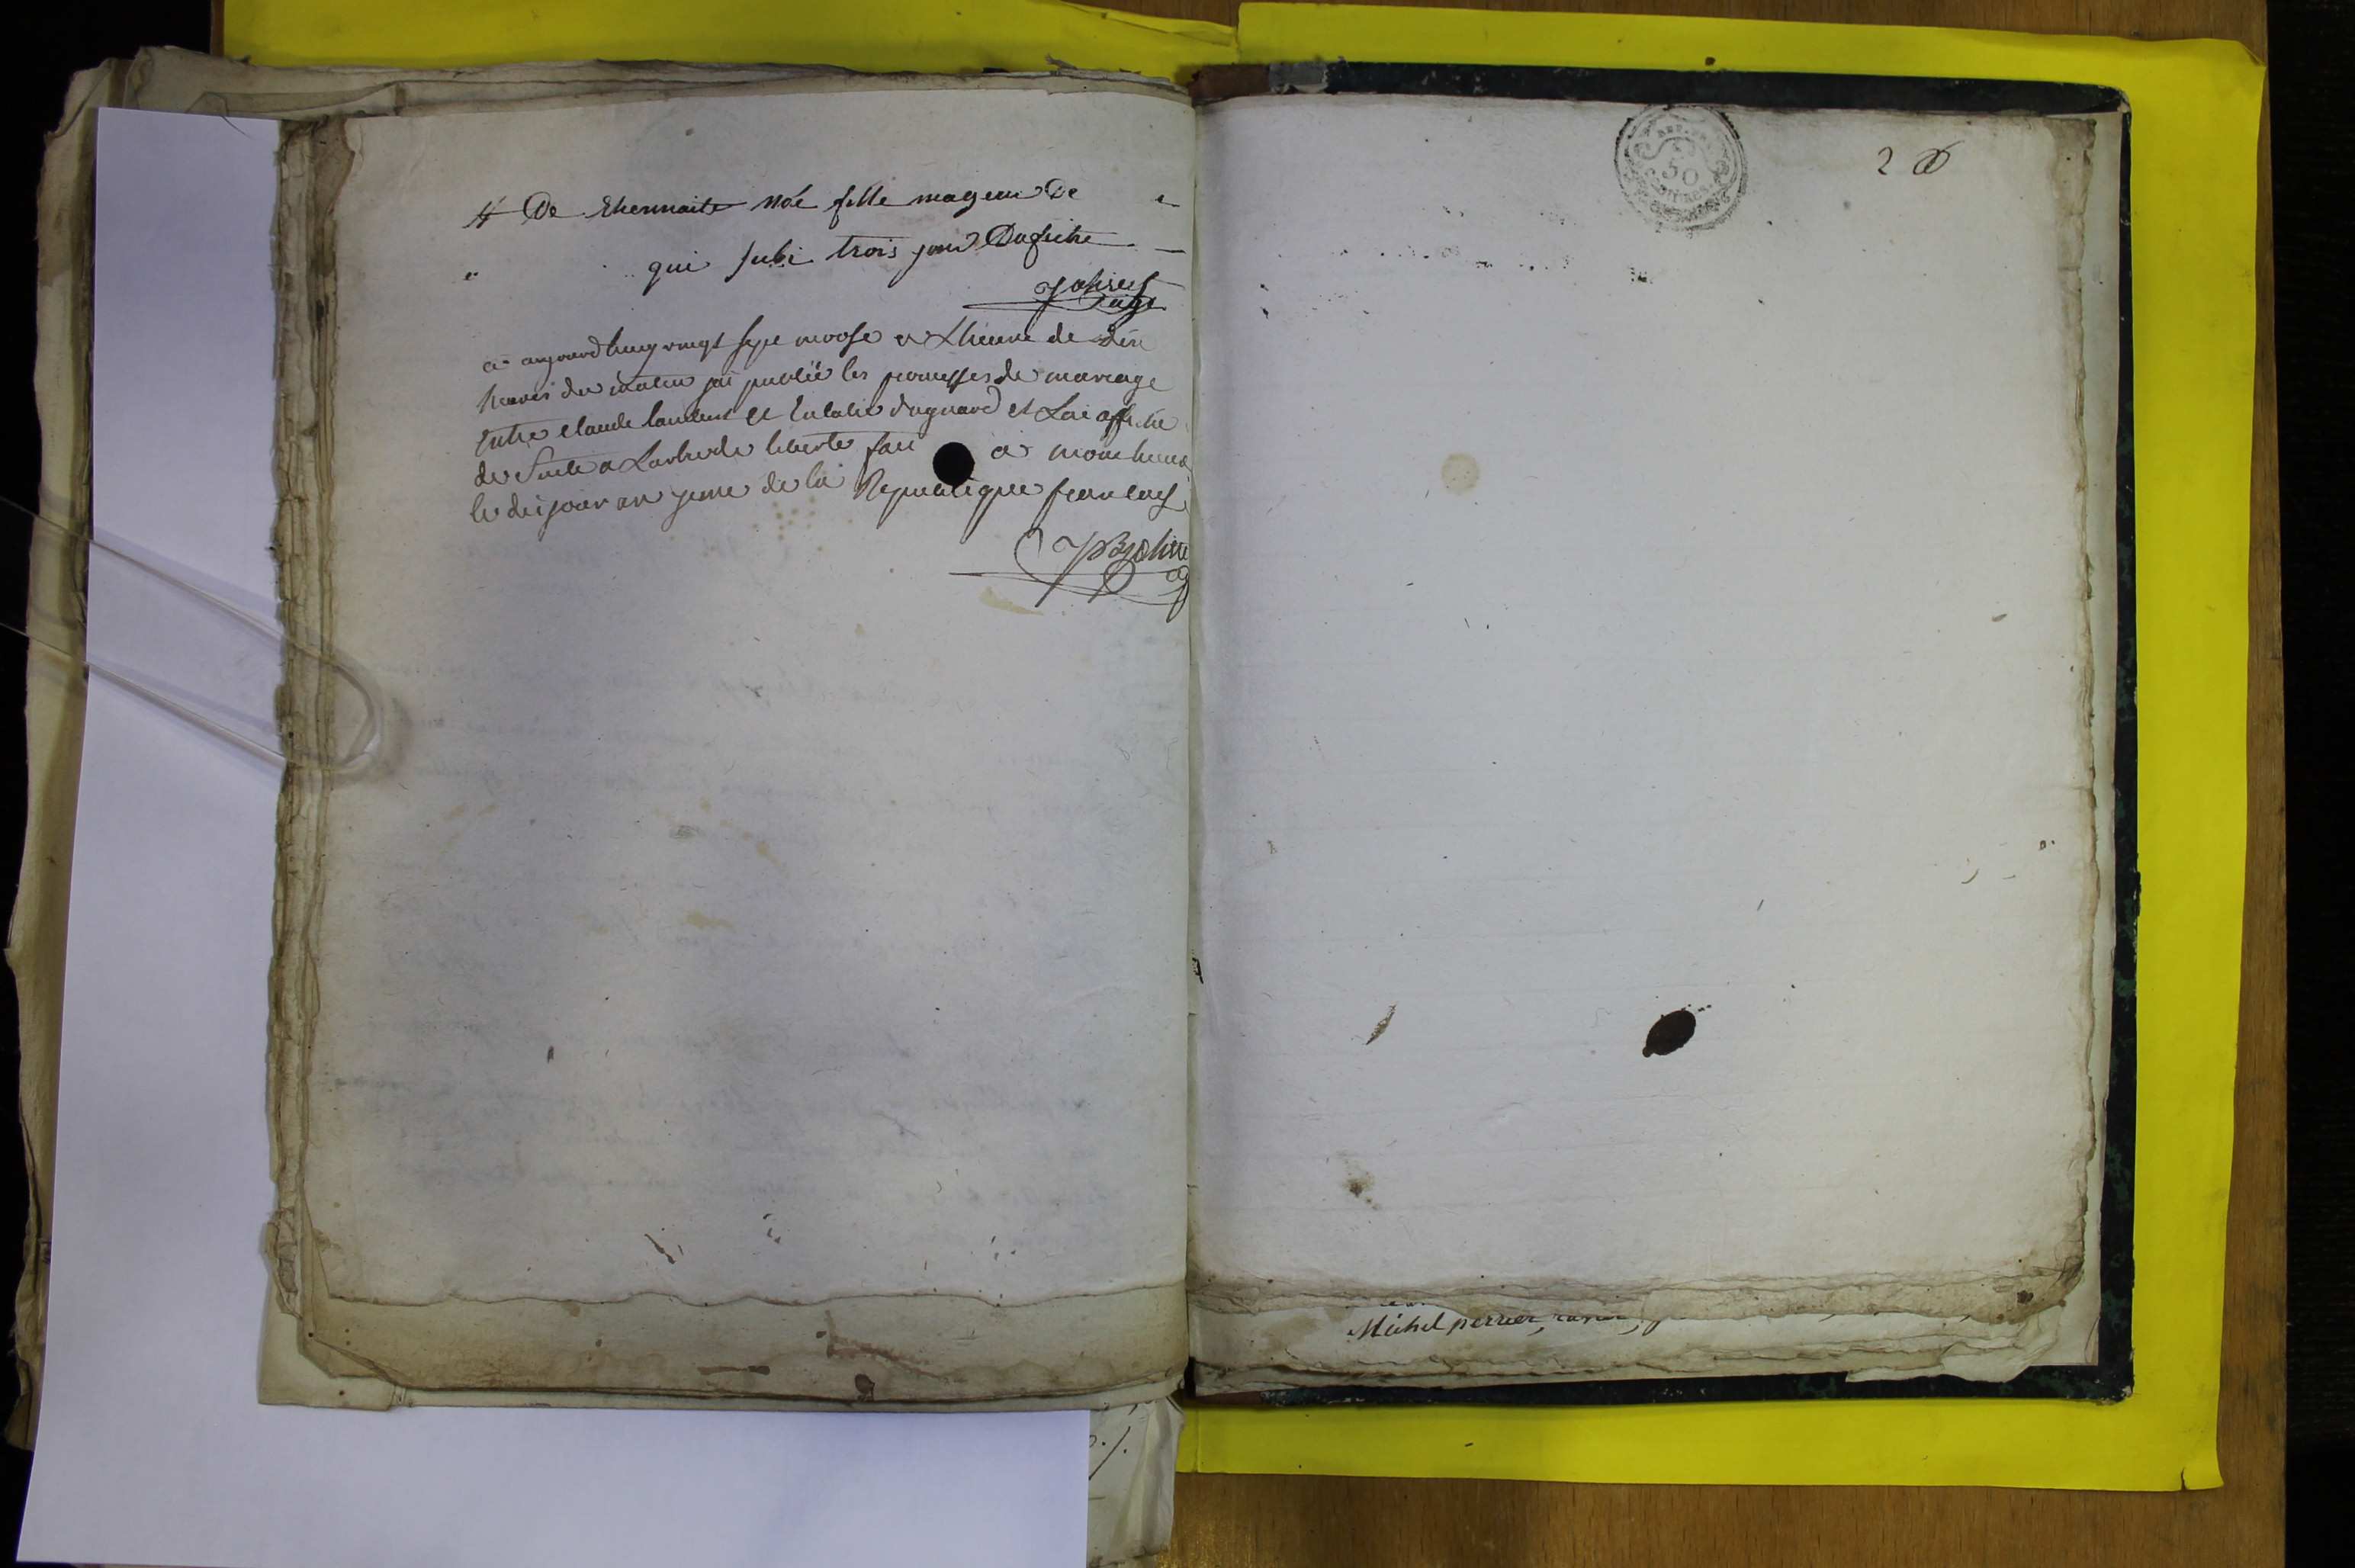 De thermaite Noé fille mageur De
qui subi trois jour Dafiche
agt
a aujourdhuy vingt sept nivose a Lheure de dix
heures du matin jai publié les promesses de mariage
entre claude laurent et Eulalie dagnard et Lai affiché
de Suite a Larbre de liberté fait a
le dis jour an 3eme de la Republique francais
2
50
Michel perrier,